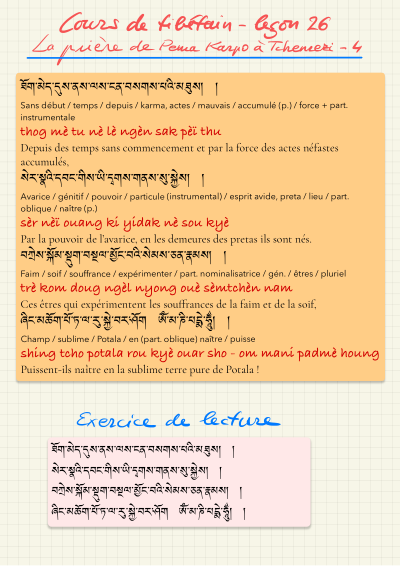 Cours de tibétain - leçon 26
La prière de Pema Karpo à Tchenrezi - 4
ཐོག་མེད་དུས་ནས་ལས་ངན་བསགས་པའི་མཐུས། །
Sans début / temps / depuis / karma, actes / mauvais / accumulé (p.) / force + part.
instrumentale
thog mè tu nè lè ngèn sak pèi thu
Depuis des temps sans commencement et par la force des actes néfastes
accumulés,
སེར་སྣའི་དབང་གིས་ཡི་དྭགས་གནས་སུ་སྐྱེས། །
Avarice / génitif / pouvoir / particule (instrumental) / esprit avide, preta / lieu / part.
oblique / naître (p.)
sèr nèi ouang ki yidak nè sou kyè
Par la pouvoir de l'avarice, en les demeures des pretas ils sont nés.
བཀྲེས་སྐོམ་སྡུག་བསྔལ་མྱོང་བའི་སེམས་ཅན་རྣམས། །
Faim / soif / souffrance / expérimenter / part. nominalisatrice / gén. / êtres / pluriel
trè kom doug ngèl nyong ouè sèmtchèn nam
Ces êtres qui expérimentent les souffrances de la faim et de la soif,
ཞིང་མཆོག་པོ་ཏ་ལ་རུ་སྐྱེ་བར་ཤོག ཨོཾ་མ་ཎི་པདྨེ་ཧཱུྃ། །
Champ / sublime / Potala / en (part. oblique) naître / puisse
shing tcho potala rou kyè ouar sho - om mani padmè houng
Puissent-ils naître en la sublime terre pure de Potala !
Exercice de lecture
ཐོག་མེད་དུས་ནས་ལས་ངན་བསགས་པའི་མཐུས། །
སེར་སྣའི་དབང་གིས་ཡི་དྭགས་གནས་སུ་སྐྱེས། །
བཀྲེས་སྐོམ་སྡུག་བསྔལ་མྱོང་བའི་སེམས་ཅན་རྣམས། །
ཞིང་མཆོག་པོ་ཏ་ལ་རུ་སྐྱེ་བར་ཤོག ཨོཾ་མ་ཎི་པདྨེ་ཧཱུྃ། །